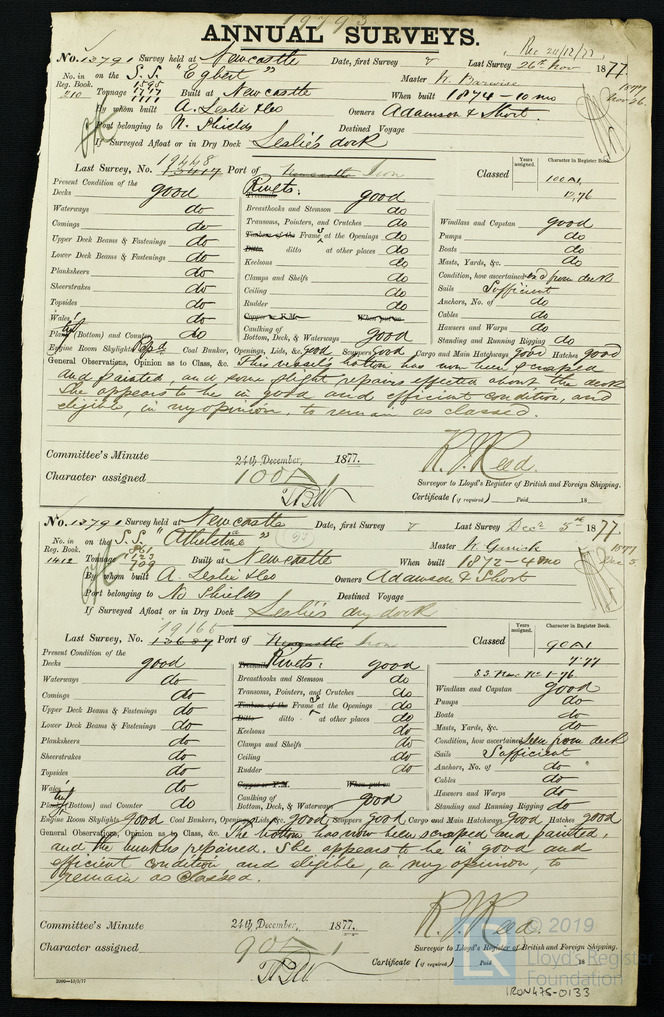 19793
ANNUAL SURVEYS.
Rec 24/12/77
No. 13791 Survey held at Newcastle Date, first Survey & Last Survey 26th Nov 1877
No. in Reg. Book. 210 on the S.S. "Egbert" Master W. Barwise
Tonnage 1595 1777 1111 Built at Newcastle When built 1874 - 10 mo
By whom built A. Leslie & Co Owners Adamson & Short.
Port belonging to N. Shields Destined Voyage
If Surveyed Afloat or in Dry Dock Leslie's dock
19448
Last Survey, No. 13414 Port of Newcastle Iron Classed 100 A1
Years assigned. Character in Register Book.
10,76
Present Condition of the Rivets:
Decks good good
Waterways do Breasthooks and Stemson do
Comings do Transoms, Pointers, and Crutches do Windlass and Capstan good
Upper Deck Beams & Fastenings do Timbers of the Frame at the Openings do Pumps do
Lower Deck Beams & Fastenings do Ditto ditto at other places do Boats do
Planksheers do Keelsons do Masts, Yards, &c. do
Sheerstrakes do Clamps and Shelfs do Condition, how ascertained from deck
Topsides do Ceiling do Sails Sufficient
Wales do Rudder do Anchors, No. of do
Plank (Bottom) and Counter do Copper or Y.M. When put on Cables do
Caulking of Bottom, Deck, & Waterways good Hawsers and Warps do
Standing and Running Rigging do
Engine Room Skylights Repd Coal Bunker, Openings, Lids, &c. good Scuppers good Cargo and Main Hatchways good Hatches good
General Observations, Opinion as to Class, &c. This vessels bottom has now been scraped
and painted, and some slight repairs effected about the deck
She appears to be in good and efficient condition, and
eligible, in my opinion, to remain as classed.
Committee's Minute 24th December, 1877.
R. J. Reed.
Character assigned 100 A 1
Surveyor to Lloyd's Register of British and Foreign Shipping.
Certificate (if required) Paid 18
No. 13791 Survey held at Newcastle Date, first Survey & Last Survey Decr 5th 1877
No. in Reg. Book. 1412 on the S.S. "Athelstane" Master W. Garrick
Tonnage 861 1123 709 Built at Newcastle When built 1872 - 4 mo
By whom built A. Leslie & Co Owners Adamson & Short
Port belonging to No Shields Destined Voyage
If Surveyed Afloat or in Dry Dock Leslie's dry dock
19165
Last Survey, No. 13637 Port of Newcastle Iron Classed 90 A1
Years assigned. Character in Register Book.
7.77
Present Condition of the Rivets:
Decks good good
Waterways do Breasthooks and Stemson do Windlass and Capstan good
Comings do Transoms, Pointers, and Crutches do Pumps do
Upper Deck Beams & Fastenings do Timbers of the Frame at the Openings do Boats do
Lower Deck Beams & Fastenings do Ditto ditto at other places do Masts, Yards, &c. do
Planksheers do Keelsons do Condition, how ascertained seen from deck
Sheerstrakes do Clamps and Shelfs do Sails Sufficient
Topsides do Ceiling do Anchors, No. of do
Wales do Rudder do Cables do
Plank (Bottom) and Counter do Copper or Y.M. When put on Hawsers and Warps do
Caulking of Bottom, Deck, & Waterways good Standing and Running Rigging do
Engine Room Skylights good Coal Bunkers, Openings, Lids, &c. good Scuppers good Cargo and Main Hatchways good Hatches good
General Observations, Opinion as to Class, &c. The bottom has now been scraped and painted,
and the bunkers repaired. She appears to be in good and
efficient condition and eligible, in my opinion, to
remain as classed.
Committee's Minute 24th December, 1877.
R. J. Reed.
Character assigned 90 A 1
Surveyor to Lloyd's Register of British and Foreign Shipping.
Certificate (if required) Paid 18
© 2019
LR Lloyd's Register Foundation
IRON475-0133